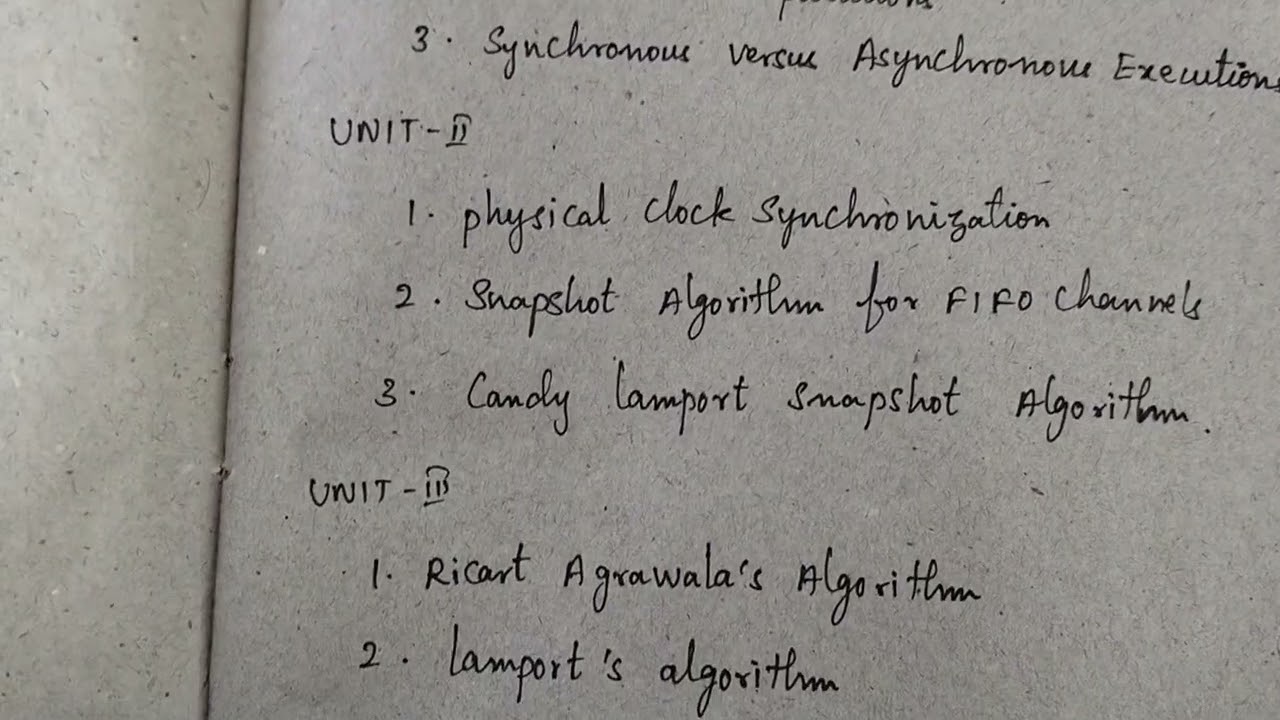 3. Synchronous versus Asynchronous Executions
UNIT-II
1. physical clock Synchronization
2. Snapshot Algorithm for FIFO channels
3. Candy lamport snapshot Algorithm.
UNIT-III
1. Ricart Agrawala's Algorithm
2. lamport's algorithm